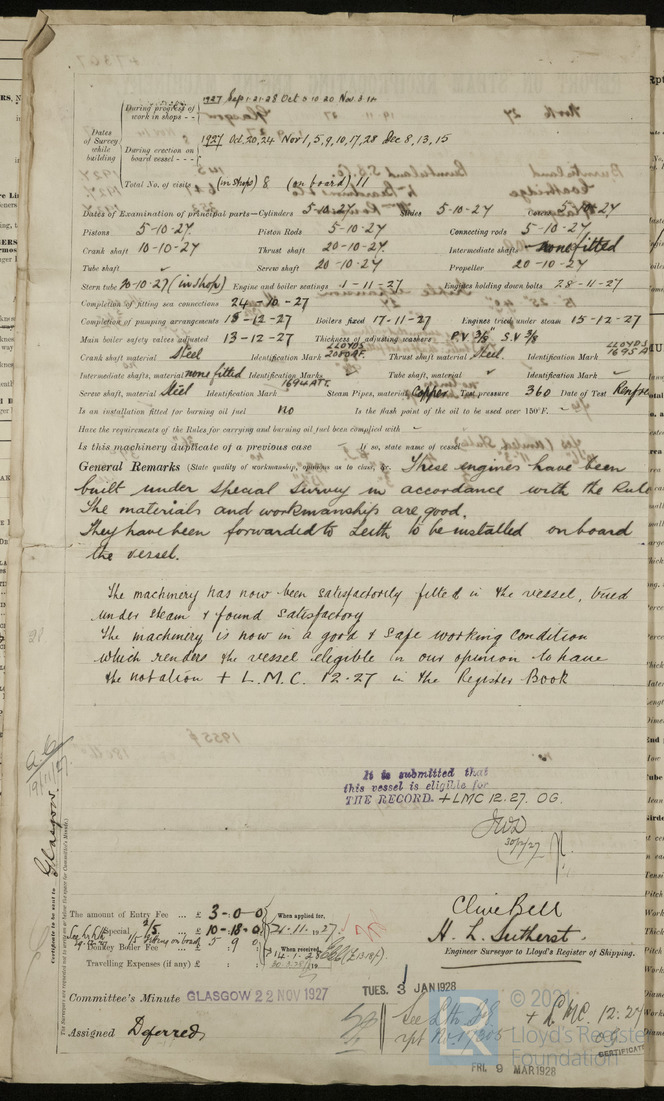 During progress of work in shops - - 1927 Sep 1. 21. 28 Oct 5. 10. 20 Nov. 8. 14
Dates of Survey while building
During erection on board vessel - - - 1927 Oct, 20, 24 Nov 1, 5, 9, 10, 17, 28 Dec 8, 13, 15
Total No. of visits (in shops) 8 (on board) 11
Dates of Examination of principal parts—Cylinders 5-10-27 Slides 5-10-27 Covers 5-10-27
Pistons 5-10-27 Piston Rods 5-10-27 Connecting rods 5-10-27
Crank shaft 10-10-27 Thrust shaft 20-10-27 Intermediate shafts none fitted
Tube shaft ✓ Screw shaft 20-10-27 Propeller 20-10-27
Stern tube 20-10-27 (in shop) Engine and boiler seatings 1-11-27 Engines holding down bolts 28-11-27
Completion of fitting sea connections 24-10-27
Completion of pumping arrangements 15-12-27 Boilers fixed 17-11-27 Engines tried under steam 15-12-27
Main boiler safety valves adjusted 13-12-27 Thickness of adjusting washers P.V. 3/8" S.V 3/8
Crank shaft material Steel Identification Mark LLOYDS Thrust shaft material Steel. Identification Mark LLOYDS
Intermediate shafts, material none fitted Identification Marks Tube shaft, material ✓ Identification Mark ✓
Screw shaft, material Steel Identification Mark Steam Pipes, material Copper Test pressure 360 Date of Test
Is an installation fitted for burning oil fuel No Is the flash point of the oil to be used over 150°F. -
Have the requirements of the Rules for carrying and burning oil fuel been complied with -
Is this machinery duplicate of a previous case If so, state name of vessel
General Remarks (State quality of workmanship, opinions as to class, &c. These engines have been
built under special survey in accordance with the Rule
The materials and workmanship are good.
They have been forwarded to Leith to be installed on board
the vessel.
The machinery has now been satisfactorily fitted in the vessel, tried
under steam & found satisfactory
The machinery is now in a good & safe working condition
which renders the vessel eligible in our opinion to have
the notation + L.M.C. 12-27 in the Register Book
It is submitted that
this vessel is eligible for
THE RECORD. + LMC 12.27. OG.
JWD
30/12/27
Certificate to be sent to Glasgow.
19/11/27.
The amount of Entry Fee ... £ 3-0-0 When applied for,
Special 4/5 ... £ 10-18-0 21.11.1927
Donkey Boiler Fee 5 9 0 When received,
Travelling Expenses (if any) £ : :
Clive Bell
H. L. Sutherst.
Engineer Surveyor to Lloyd's Register of Shipping.
Committee's Minute GLASGOW 22 NOV 1927
TUES. 3 JAN 1928
Assigned Deferred
+ LMC. 12.27
OG.
CERTIFICATE
FRI. 9 MAR 1928
© 2021
Lloyd's Register
Foundation